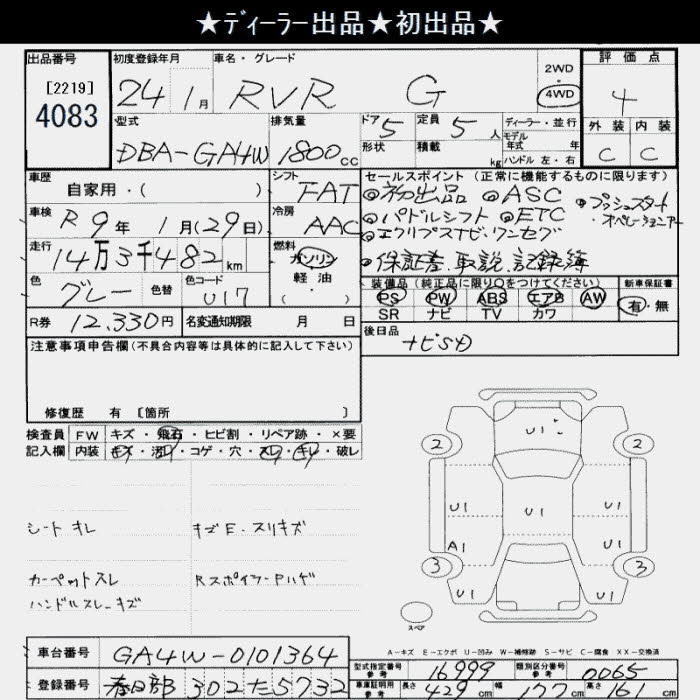 ★ディーラー出品★初出品★
出品番号 初度登録年月 車名・グレード 評価点
[2219] 24 1月 RVR G 2WD 4WD 4
4083
型式 排気量 ドア 5 定員 5人 ディーラー・並行 外装 内装
モデル年式 年
DBA-GA4W 1800cc 形状 積載 kg ハンドル 左・右 C C
車歴 シフト セールスポイント (正常に機能するものに限ります)
自家用・( ) FAT ◎初出品 ◎ASC ◎プッシュスタート
車検 冷房 ◎パドルシフト ◎ETC ・オペレーション
R9年 1月(29日) AAC ◎エクリプスナビ・ワンセグ
走行 燃料
14万3千482km ガソリン ◎保証書、取説、記録簿
色 色替 色コード 軽油 装備品(純正品に限り○をつけてください) 新車保証書
グレー U17 ( ・ ) PS PW ABS エアB AW 有・無
R券 12,330円 名変通知期限 月 日 SR ナビ TV カワ
後日品
ナビSD
注意事項申告欄(不具合内容等は具体的に記入して下さい)
修復歴 有 [箇所 ]
検査員 FW キズ・飛石・ヒビ割・リペア跡・×要
記入欄 内装 キズ・汚れ・コゲ・穴・スレ・キレ・破レ
シート キレ キズE・スリキズ
カーペットスレ Rスポイラー Pハゲ
ハンドルスレ・キズ
U1
2 2
U1 U1 U1
A1 U1
3 3
U1 U1
スペア
A-キズ E-エクボ U-凹み W-補修跡 S-サビ C-腐食 XX-交換済
車台番号 GA4W-0101364
型式指定番号 参考 16999 類別区分番号 参考 0065
登録番号 春日部 302 た 5732
車庫証明用 参考 長さ 429cm 幅 177cm 高さ cm